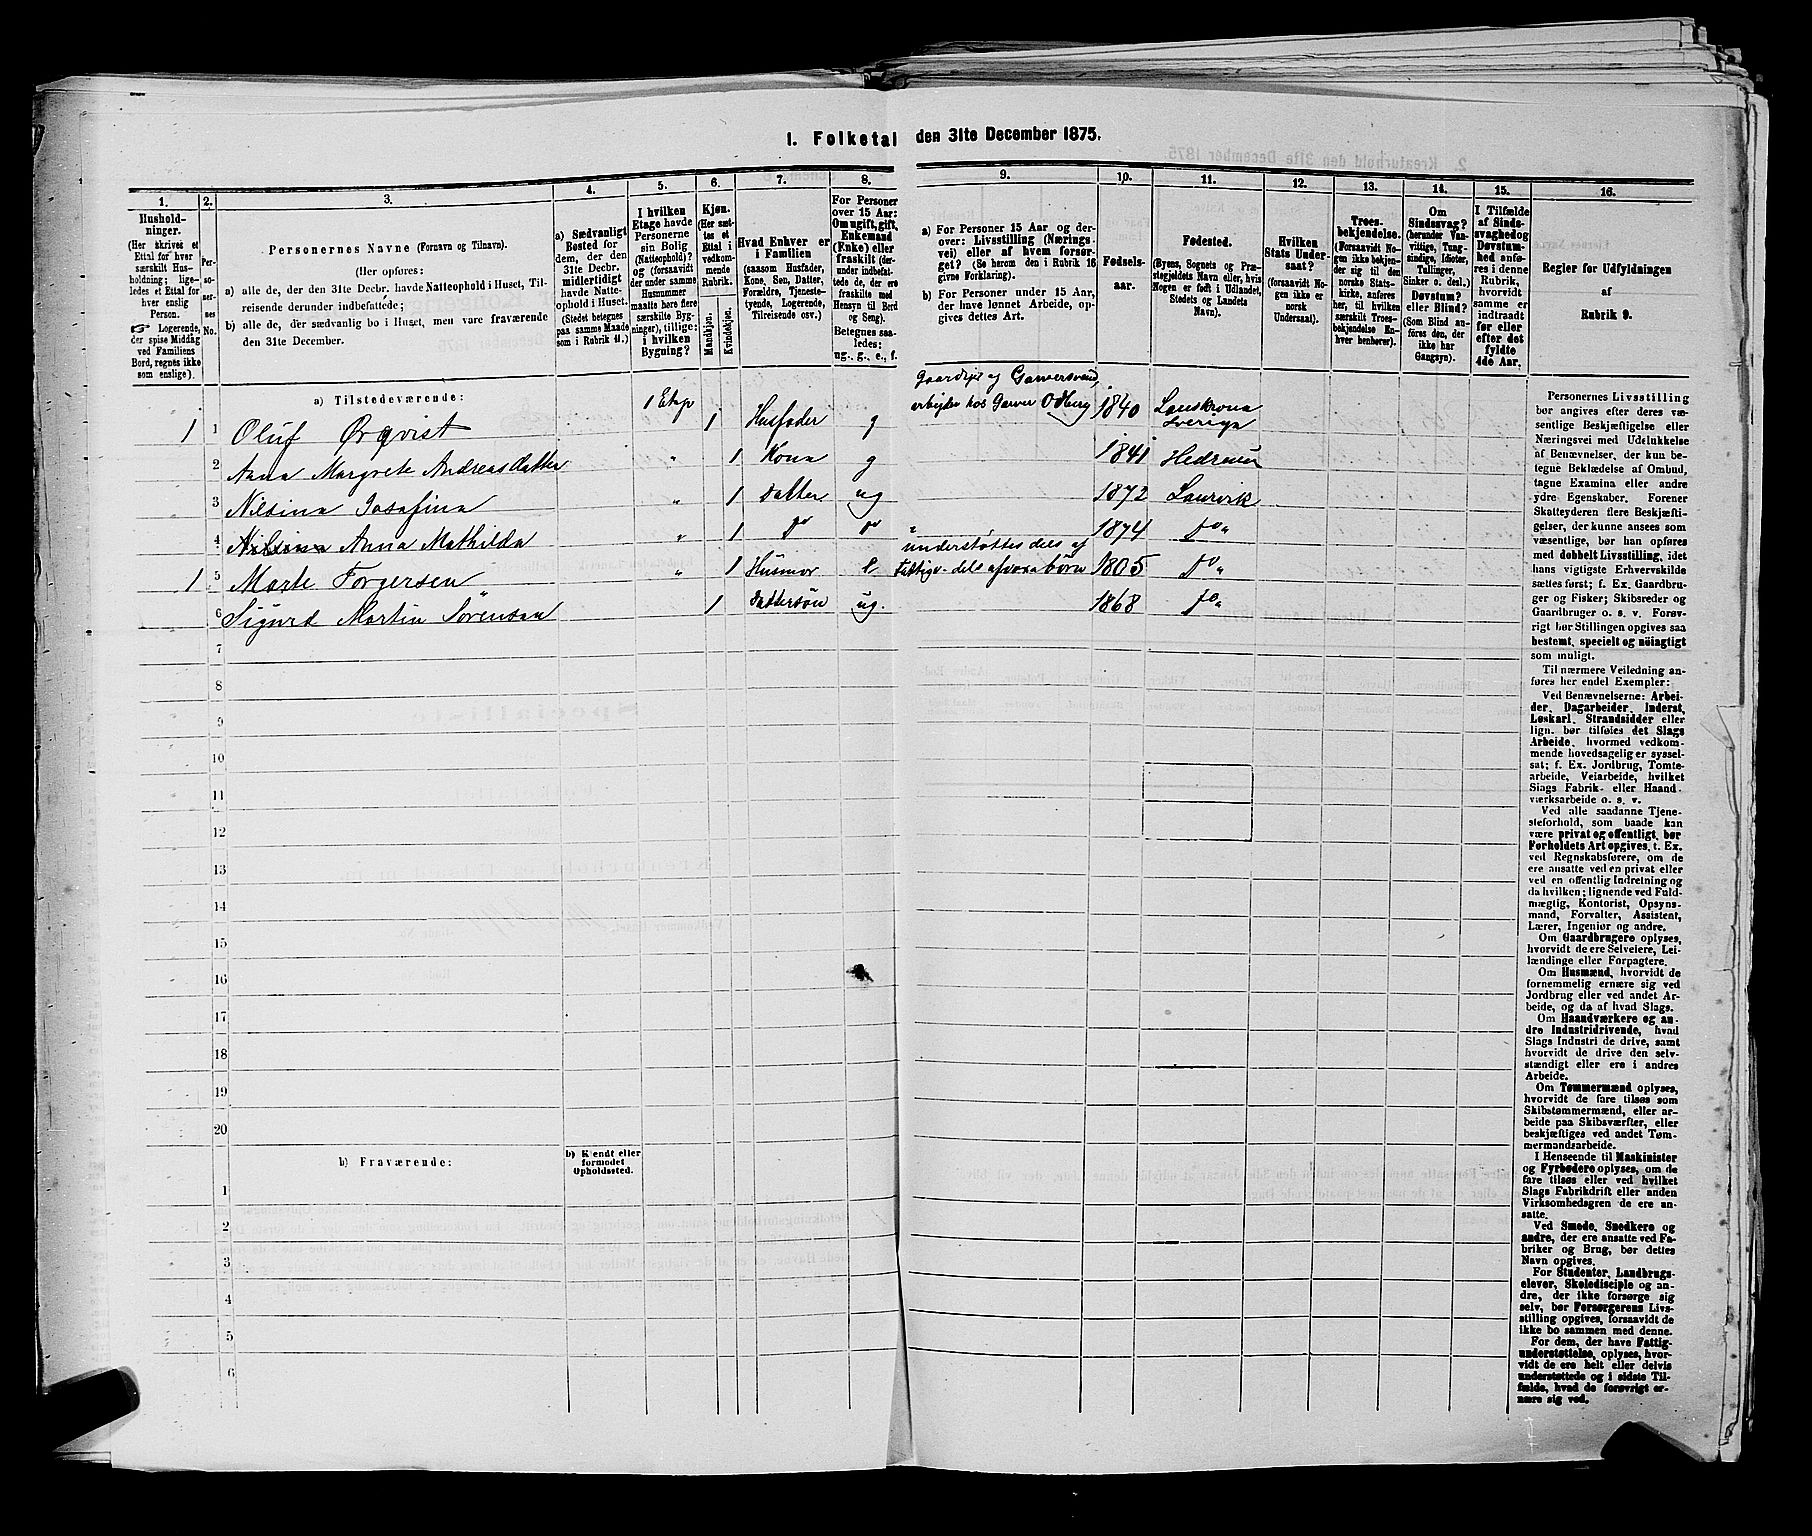 1. Folketal den 31te December 1875.
1.
Hushold-
ninger.
(Her skrives et
Ettal for hver
særskilt Hus-
holdning; lige-
ledes et Ettal for
hver enslig
Person.
☞ Logerende,
der spise Middag
ved Familiens
Bord, regnes ikke
som enslige).
2.
Per-
so-
ner-
nes
No.
3.
Personernes Navne (Fornavn og Tilnavn).
(Her opføres:
a) alle de, der den 31te Decbr. havde Natteophold i Huset, Til-
reisende derunder indbefattede;
b) alle de, der sædvanlig bo i Huset, men vare fraværende
den 31te December.
4.
a) Sædvanligt
Bosted for
dem, der den
31te Decbr.
midlertidigt
havde Natte-
ophold i Huset.
(Stedet betegnes
paa samme Maade
som i Rubrik 11.)
5.
I hvilken
Etage havde
Personerne
sin Bolig
(Natteophold)?
og (forsaavidt
der under samme
Husnummer
maatte høre flere
særskilte Byg-
ninger), tillige:
i hvilken
Bygning?
6.
Kjøn.
(Her sæt-
tes et
Ettal i
vedkom-
mende
Rubrik.
Mandkjøn.
Kvindekjøn.
7.
Hvad Enhver er
i Familien
(saasom Husfader,
Kone, Søn, Datter,
Forældre, Tjeneste-
tyende, Logerende,
Tilreisende osv.)
8.
For Personer
over 15 Aar:
Om ugift, gift,
Enkemand
(Enke) eller
fraskilt (der-
under indbefat-
tede de, der ere
fraskilte med
Hensyn til Bord
og Seng).
Betegnes saa-
ledes:
ug., g., e., f.
9.
a) For Personer 15 Aar og der-
over: Livsstilling (Nærings-
vei) eller af hvem forsør-
get? (Se herom den i Rubrik 16
givne Forklaring).
b) For Personer under 15 Aar,
der have lønnet Arbeide, op-
gives dettes Art.
10.
Fødsels-
aar.
11.
Fødested.
(Byens, Sognets og Præ-
stegjeldets Navn eller, hvis
Nogen er født i Udlandet,
Stedets og Landets
Navn).
12.
Hvilken
Stats Under-
saat?
(forsaavidt No-
gen ikke er
norsk
Undersaat).
13.
Troes-
bekjendelse.
(Forsaavidt No-
gen ikke bekjen-
der sig til den
norske Stats-
kirke, anføres
her, til hvilken
særskilt Troes-
bekjendelse En-
hver henhører).
14.
Om
Sindssvag?
(herunder Van-
vittige, Tung-
sindige, Idioter,
Tullinger,
Sinker o. desl.)
Døvstum?
eller Blind?
(Som Blind an-
føres den, der
ikke har
Gangsyn).
15.
I Tilfælde
af Sinds-
svaghed og
Døvstum-
hed anfø-
res i denne
Rubrik,
hvorvidt
samme er
indtraadt
før eller
efter det
fyldte
4de Aar.
16.
Regler for Udfyldningen
af
Rubrik 9.
a) Tilstedeværende:
Gaardeje og Garversvend,
1 1 Oluf Ørqvist 1 Etage 1 Husfader g arbejder hos Garver Odberg 1840 Lanskrona Sverige
2 Anna Margrete Andreasdatter " 1 Kona g 1841 Hedrum
3 Nilsina Josefina " 1 Datter ug 1872 Laurvik
4 Nilsina Anna Mathilda " 1 Do Do " 1874 Do "
understøttes dels af
1 5 Marte Torgersen " 1 Husmor e Fattigv- dels af vora börn 1805 Do "
6 Sigurd Martin Sörensen 1 Dattersön ug. 1868 Do "
7
8
9
10
11
12
13
14
15
16
17
18
19
20
b) Fraværende:
b) Kjendt eller
formodet
Opholdssted.
1
2
3
4
5
6
Personernes Livsstilling
bør angives efter deres væ-
sentlige Beskjæftigelse eller
Næringsvei med Udelukkelse
af Benævnelser, der kun be-
tegne Beklædelse af Ombud,
tagne Examina eller andre
ydre Egenskaber. Forener
Skatteyderen flere Beskjæfti-
gelser, der kunne ansees som
væsentlige, bør han opføres
med dobbelt Livsstilling, idet
hans vigtigste Erhvervskilde
sættes først; f. Ex. Gaardbru-
ger og Fisker; Skibsreder og
Gaardbruger o. s. v. Forøv-
rigt bør Stillingen opgives saa
bestemt, specielt og nøiagtigt
som muligt.
Til nærmere Veiledning an-
føres her endel Exempler:
Ved Benævnelserne: Arbei-
der, Dagarbeider, Inderst,
Løskarl, Strandsidder eller
lign. bør tilføies det Slags
Arbeide, hvormed vedkom-
mende hovedsagelig er syssel-
sat; f. Ex. Jordbrug, Tomte-
arbeide, Veiarbeide, hvilket
Slags Fabrik- eller Haand-
værksarbeide o. s. v.
Ved alle saadanne Tjene-
steforhold, som baade kan
være privat og offentligt, bør
Forholdets Art opgives, t. Ex.
ved Regnskabsførere, om de
ere ansatte ved en privat eller
ved en offentlig Indretning og
da hvilken; lignende ved Fuld-
mægtig, Kontorist, Opsyns-
mand, Forvalter, Assistent,
Lærer, Ingeniør og andre.
Om Gaardbrugere oplyses,
hvorvidt de ere Selveiere, Lei-
lændinge eller Forpagtere.
Om Husmænd, hvorvidt de
fornemmelig ernære sig ved
Jordbrug eller ved andet Ar-
beide, og da af hvad Slags.
Om Haandværkere og an-
dre Industridrivende, hvad
Slags Industri de drive, samt
hvorvidt de drive den selv-
stændigt eller ere i andres
Arbeide.
Om Tømmermænd oplyses,
hvorvidt de fare tilsøs som
Skibstømmermænd, eller ar-
beide paa Skibsværfter, eller
beskjæftiges ved andet Tøm-
mermandsarbeide.
I Henseende til Maskinister
og Fyrbødere oplyses, om de
fare tilsøs eller ved hvilket
Slags Fabrikdrift eller anden
Virksomhedsgren de ere an-
satte.
Ved Smede, Snedkere og
andre, der ere ansatte ved Fa-
briker og Brug, bør dettes
Navn opgives.
For Studenter, Landbrugs-
elever, Skoledisciple og an-
dre, der ikke forsørge sig
selv, bør Forsørgerens Livs-
stilling opgives, forsaavidt de
ikke bo sammen med denne.
For dem, der have Fattig-
understøttelse, oplyses, hvor-
vidt de ere helt eller delvis
understøttede og i sidste Til-
fælde, hvad de forøvrigt er-
nære sig ved.